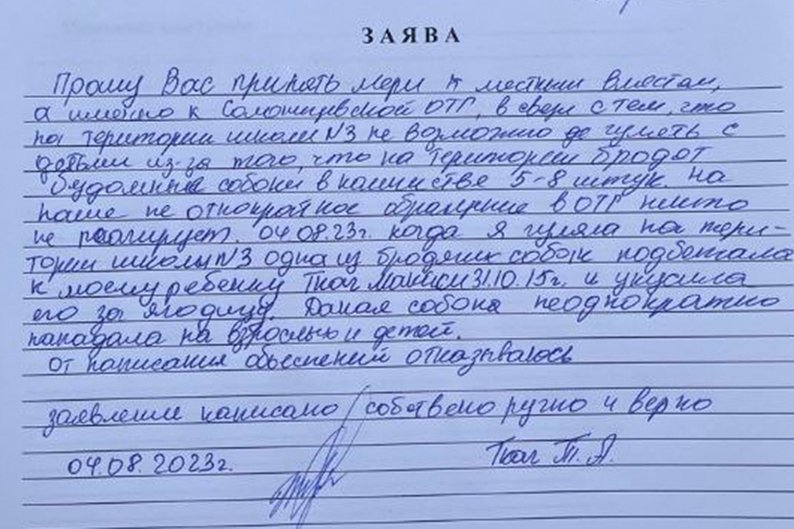 ЗАЯВА
Прошу Вас принять мери к местным властам,
а именно к Соложицевской ОТГ, в связи с тем, что
на територии школи №3 не возможно де гулять с
детьми из-за того, что на територии бродят
бездомные собаки в количестве 5-8 штук. На
наше не однократное обращение в ОТГ никто
не реагирует. 04.08.23г. когда я гуляла на тери-
тории школи №3 одна из бродячих собак подбежала
к моему ребенку Ткач 31.10.15г. и укусила
его за ягодицу. Даная собака неоднократно
нападала на взрослых и детей.
От написания обьеснений отказываюсь
заявление написано собствено ручно и верно
04.08.2023г. Ткач Т. А.